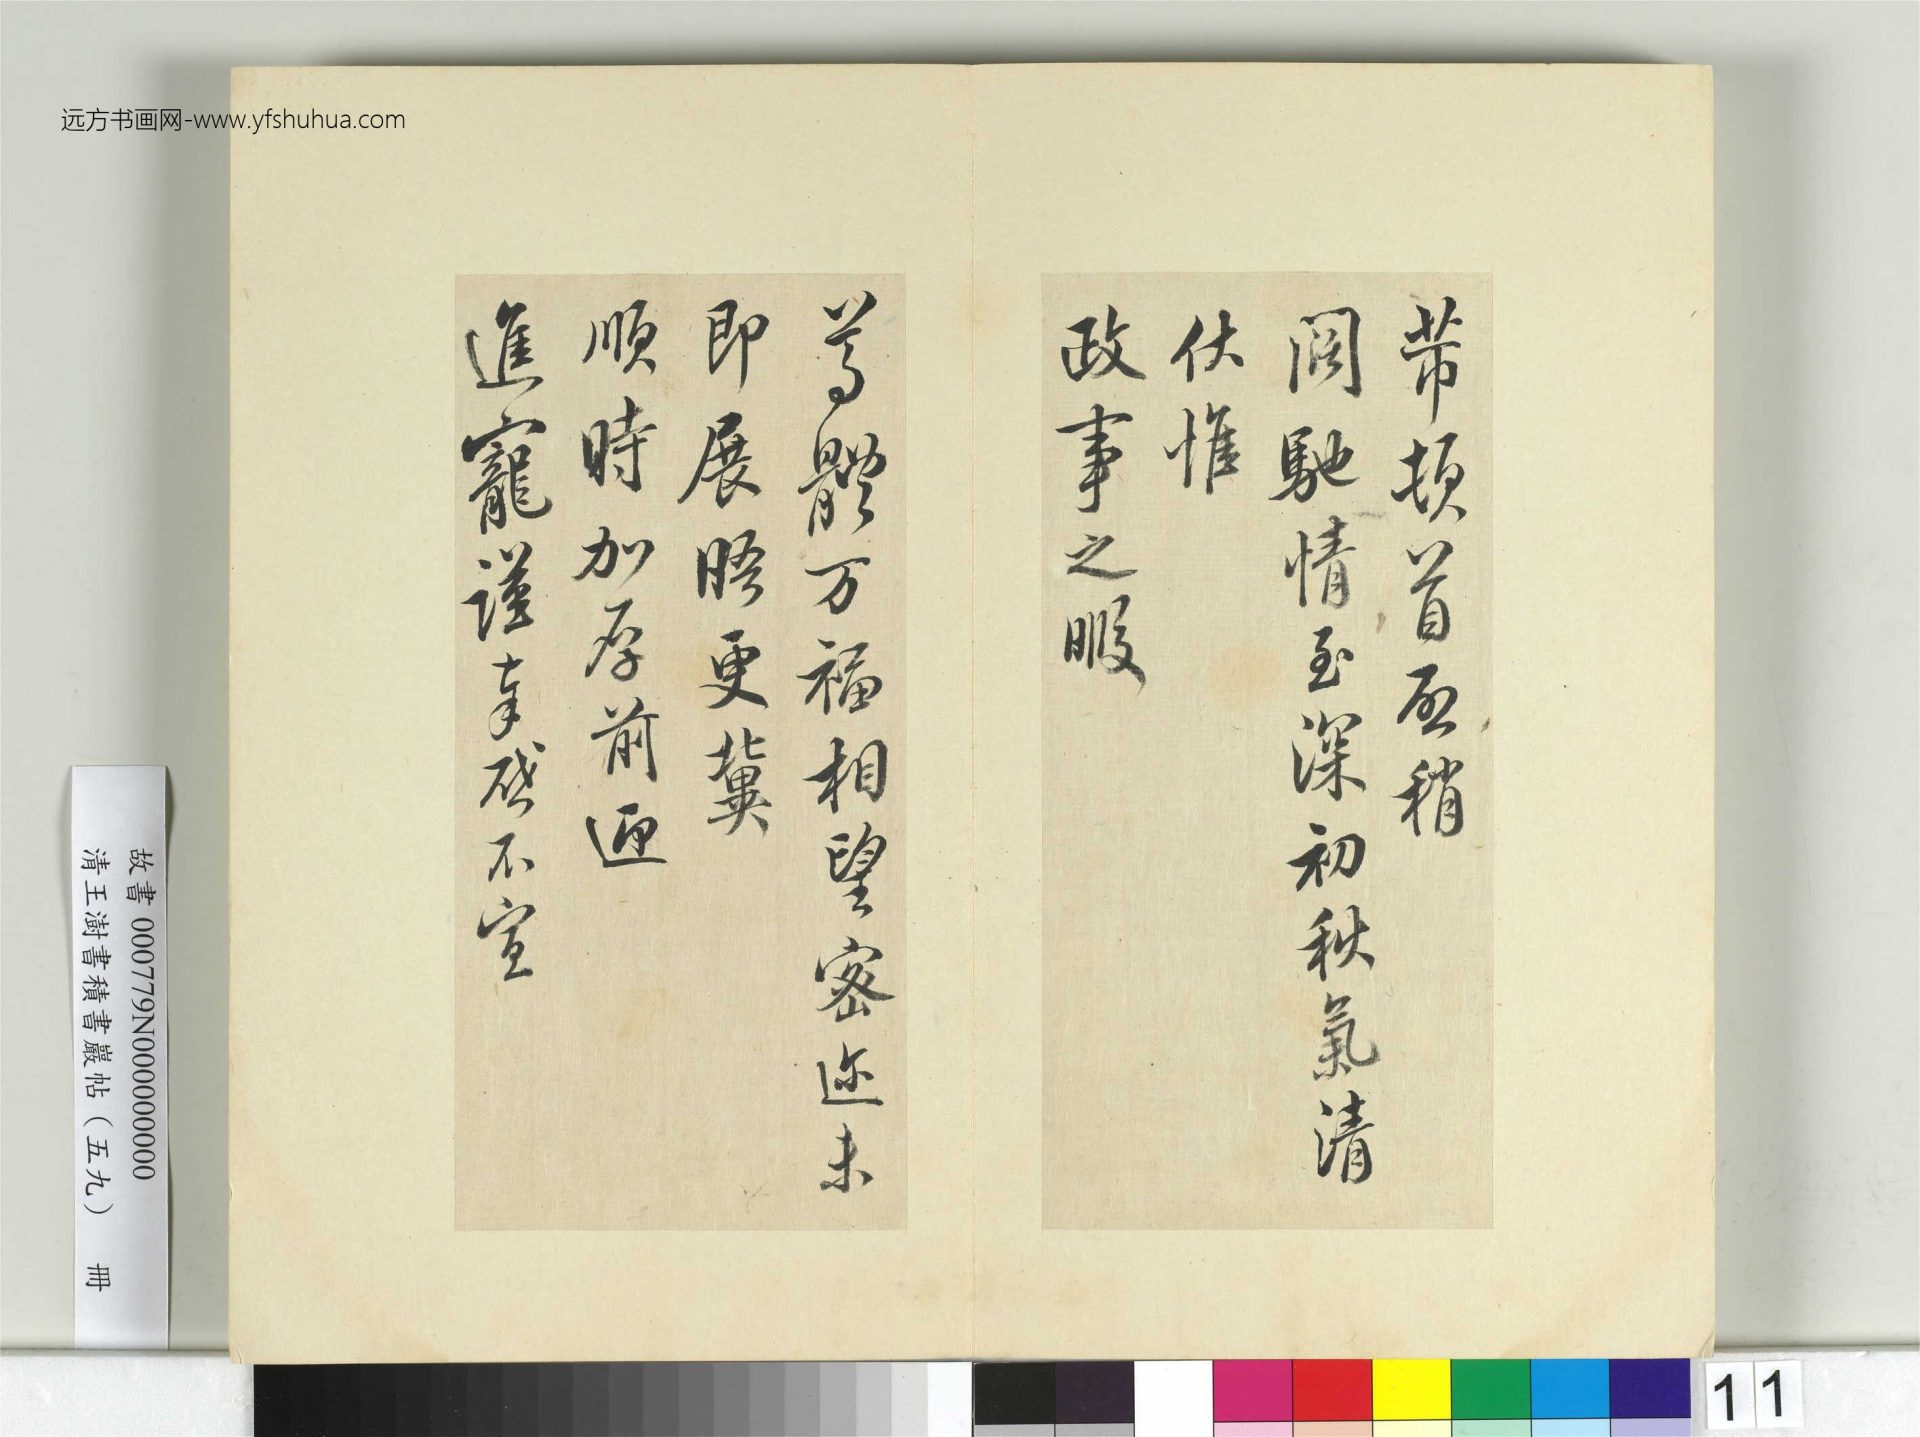 远方书画网-www.yfshuhua.com
芾頓首再稍
闊馳情至深初秋氣清
伏惟
政事之暇
尊體万福相望密迩未
即展晤更冀
順時加厚前迎
進寵謹奉啓不宣
故書 000779N000000000
清王澍書積書巖帖（五九） 冊
11